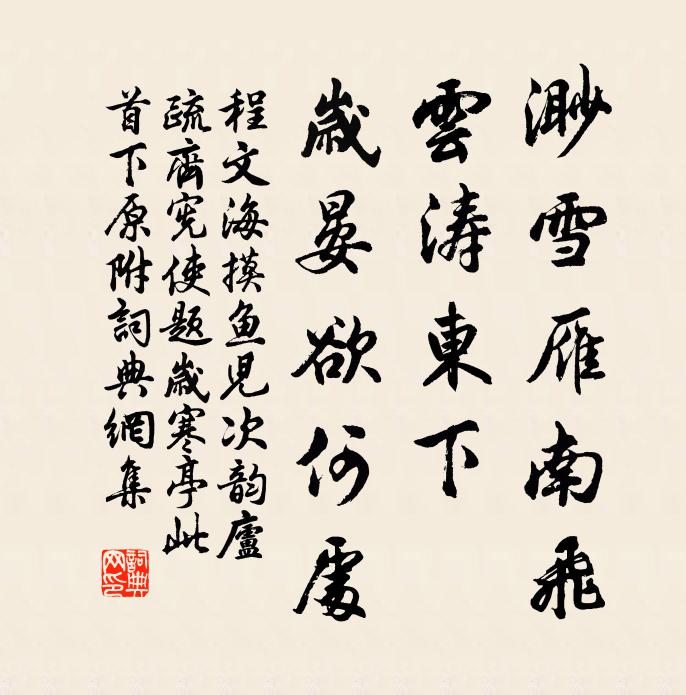 渺雪雁南飛
雲涛東下
歲晏欲何處
程文海摸魚児次韵廬
疏齋憲使題歲寒亭此
首下原附詞典網集
詞典
网印